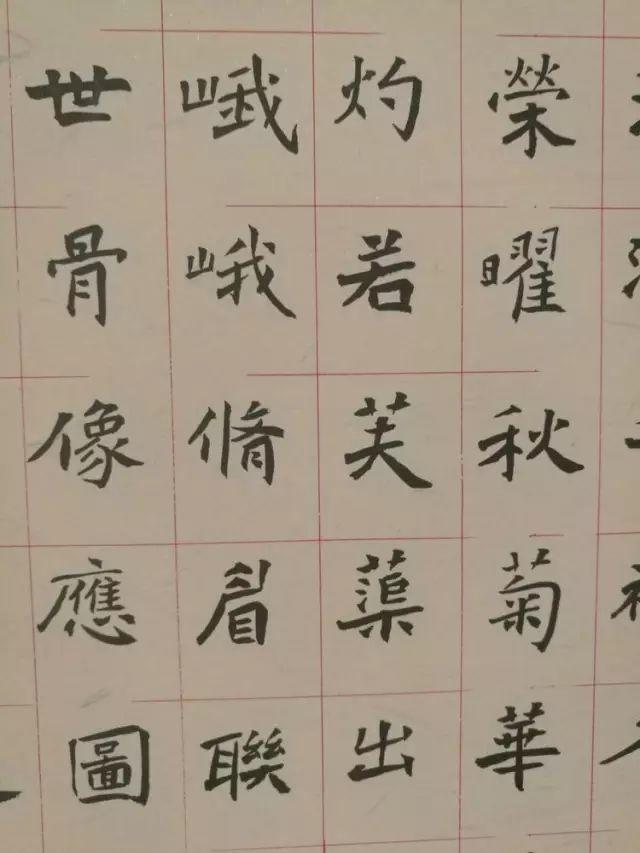 榮曜秋菊華
灼若芙蕖出
峨峨脩眉聯
世骨像應圖